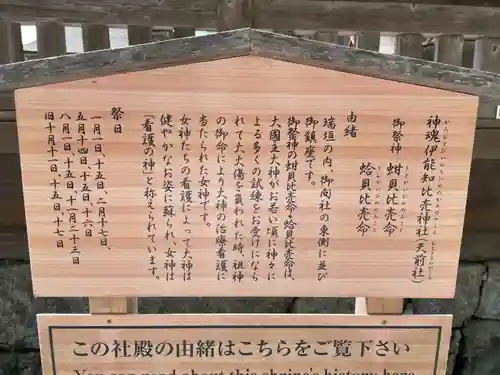 神魂伊能知比売神社（天前社）
御祭神　蚶貝比売命
蛤貝比売命
由緒
瑞垣の内、御向社の東側に並び
御鎮座です。
御祭神の蚶貝比売命・蛤貝比売命は、
大国主大神がお若い頃に神々に
よる多くの試練をお受けになら
れて大火傷を負われた時、祖神
の御命により大神の治療看護に
当たられた女神です。
女神たちの看護によって大神は
健やかなお姿に蘇られ、女神は
「看護の神」と称えられています。
祭日
一月一日、十五日、二月十七日、
五月十四日、十五日、十六日
八月一日、十五日、十一月二十三日
旧十月十一日、十五日、十七日
この社殿の由緒はこちらをご覧下さい
You can read about this shrine's history here